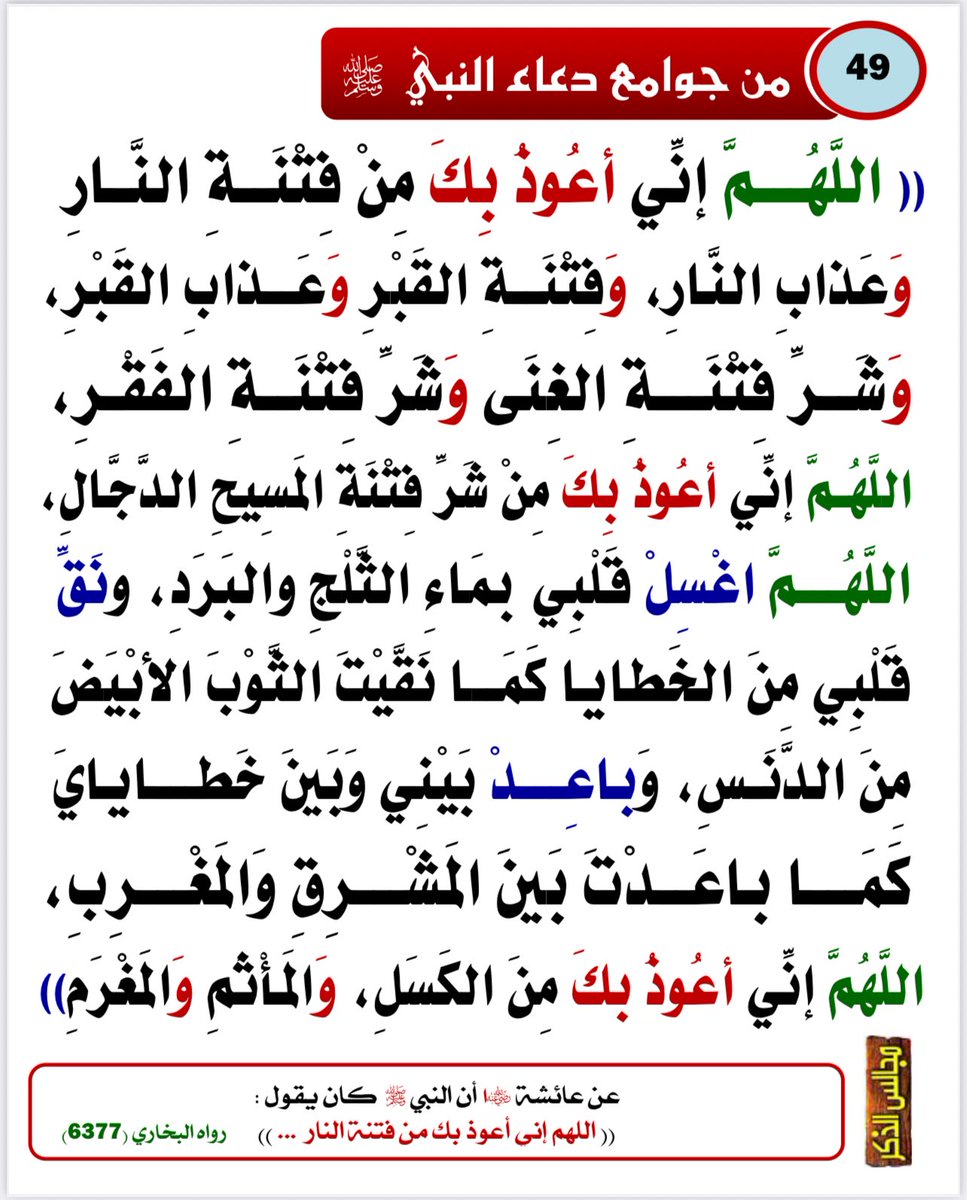 49
من جوامع دعاء النبي ﷺ
(( اللَّهُــمَّ إنِّي أعُوذُ بِكَ مِنْ فِتْنَــةِ النَّــارِ
وَعَذابِ النَّارِ، وَفِتْنَــةِ القَبْرِ وَعَــذابِ القَبْرِ،
وَشَــرِّ فتْنَــــةِ الغِنَى وَشَرِّ فتْنَــة الفَقْــرِ،
اللَّهُمَّ إنِّي أعُوذُ بِكَ مِنْ شَرِّ فِتْنَةِ المَسِيحِ الدَّجَّالِ،
اللَّهُــــمَّ اغْسِلْ قَلْبِي بمَاءِ الثَّلْجِ والبَرَدِ، ونَقِّ
قَلْبِي مِنَ الخَطايــا كَمَــا نَقَّيْتَ الثَّوْبَ الأبْيَضَ
مِنَ الدَّنَــسِ، وَباعِــــدْ بَيْنِي وَبَينَ خَطــــايايَ
كَمَــــا باعَــدْتَ بَينَ المَشْــــرِقِ وَالمَغْــــرِبِ،
اللَّهُمَّ إنِّي أعُوذُ بكَ مِنَ الكَسَلِ، وَالمَأْثمِ وَالمَغْرَمِ))
عن عائشة رضي الله عنها أن النبي ﷺ كان يقول :
(( اللهم إنى أعوذ بك من فتنة النار ... )) رواه البخاري (6377)
مجالس الذكر